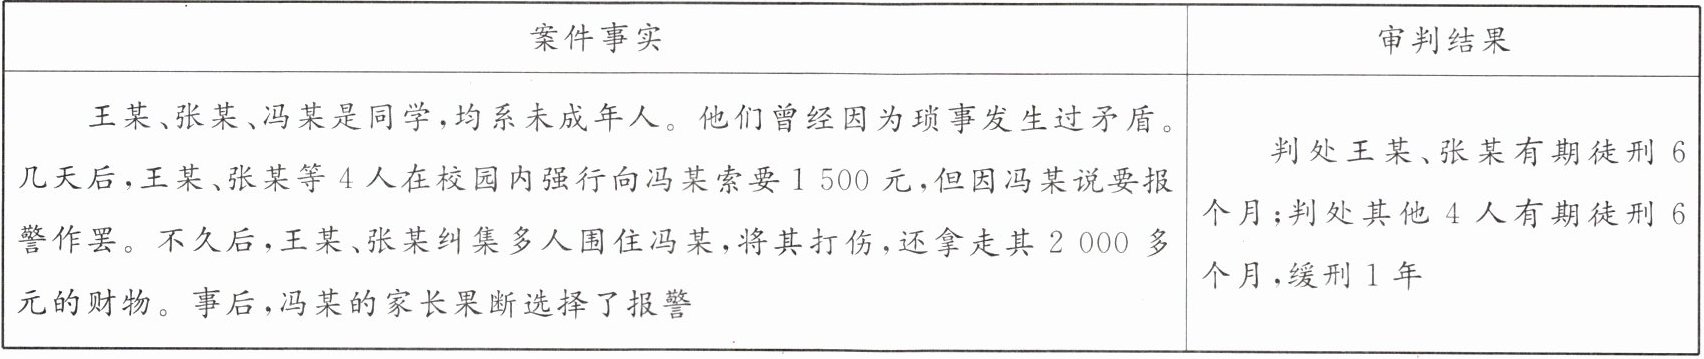 案件事实
审判结果
王某、张某、冯某是同学,均系未成年人。他们曾经因为琐事发生过矛盾。
几天后,王某、张某等 4 人在校园内强行向冯某索要 1 500 元,但因冯某说要报
警作罢。不久后,王某、张某纠集多人围住冯某,将其打伤,还拿走其 2 000 多
元的财物。事后,冯某的家长果断选择了报警
判处王某、张某有期徒刑 6
个月;判处其他 4 人有期徒刑 6
个月,缓刑 1 年